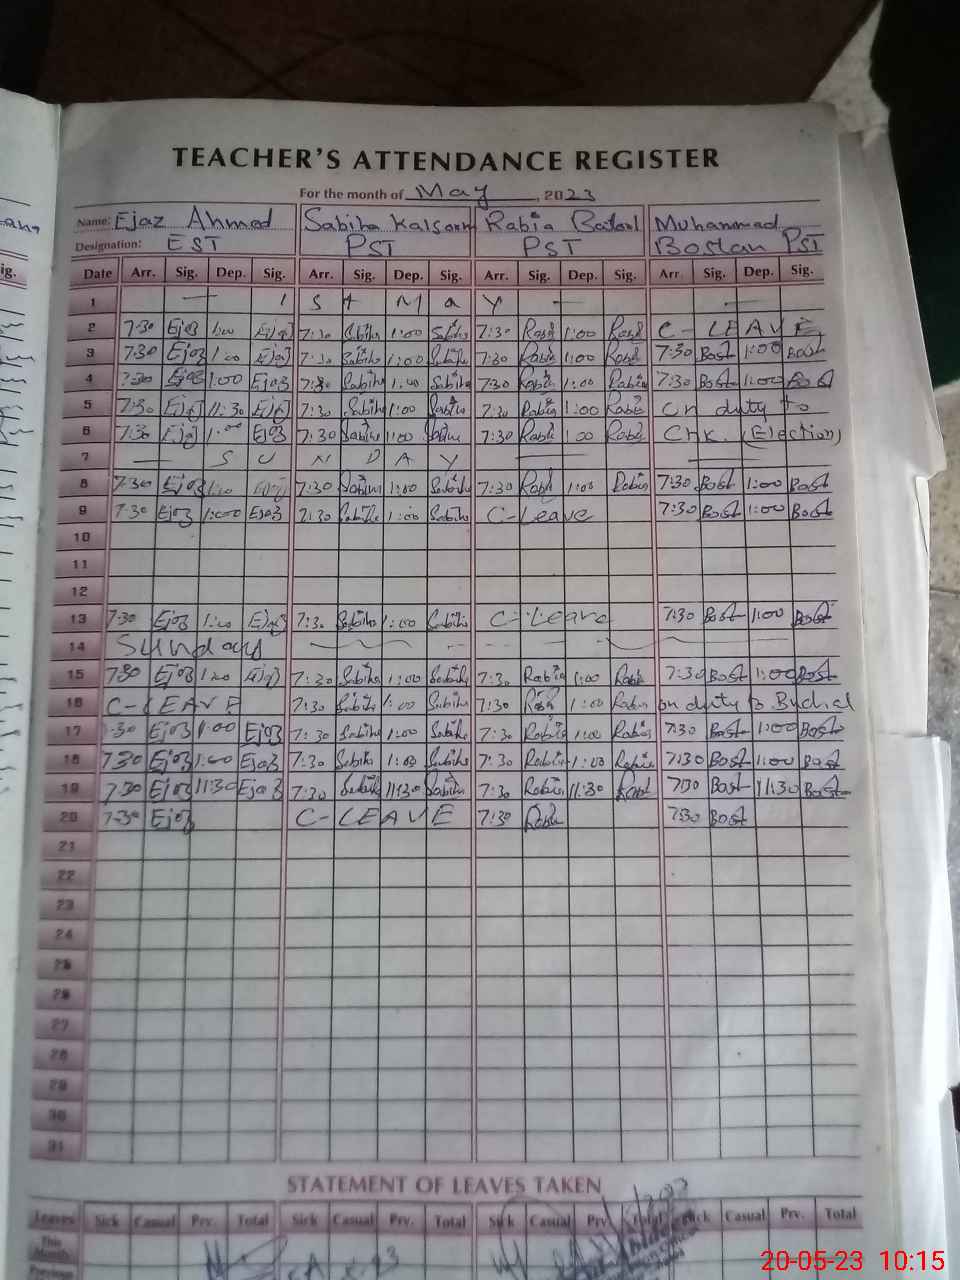 TEACHER'S ATTENDANCE REGISTER
For the month of May, 2023
Name: Ejaz Ahmed Sabiha Kalsoom Rabia Batool Muhammad
Designation: EST PST PST Bostan PST
Date Arr. Sig. Dep. Sig. Arr. Sig. Dep. Sig. Arr. Sig. Dep. Sig. Arr. Sig. Dep. Sig.
1 — 1 S t M a y — —
2 7:30 Ejaz 1:00 Ejaz 7:30 Sabiha 1:00 Sabiha 7:30 Rabia 1:00 Rabia C-LEAVE
3 7:30 Ejaz 1:00 Ejaz 7:30 Sabiha 1:00 Sabiha 7:30 Rabia 1:00 Rabia 7:30 Bost 1:00 Bost
4 7:30 Ejaz 1:00 Ejaz 7:30 Sabiha 1:00 Sabiha 7:30 Rabia 1:00 Rabia 7:30 Bost 1:00 Bost
5 7:30 Ejaz 11:30 Ejaz 7:30 Sabiha 1:00 Sabiha 7:30 Rabia 1:00 Rabia on duty to
6 7:30 Ejaz 1:00 Ejaz 7:30 Sabiha 1:00 Sabiha 7:30 Rabia 1:00 Rabia (Election)
7 — S U N D A Y — —
8 7:30 Ejaz 1:00 Ejaz 7:30 Sabiha 1:00 Sabiha 7:30 Rabia 1:00 Rabia 7:30 Bost 1:00 Bost
9 7:30 Ejaz 1:00 Ejaz 7:30 Sabiha 1:00 Sabiha C-Leave 7:30 Bost 1:00 Bost
10
11
12
13 7:30 Ejaz 1:00 Ejaz 7:30 Sabiha 1:00 Sabiha C-Leave 7:30 Bost 1:00 Bost
14 Sunday
15 7:30 Ejaz 1:00 Ejaz 7:30 Sabiha 1:00 Sabiha 7:30 Rabia 1:00 Rabia 7:30 Bost 1:00 Bost
16 C-LEAVE 7:30 Sabiha 1:00 Sabiha 7:30 Rabia 1:00 Rabia on duty to Buchal
17 7:30 Ejaz 1:00 Ejaz 7:30 Sabiha 1:00 Sabiha 7:30 Rabia 1:00 Rabia 7:30 Bost 1:00 Bost
18 7:30 Ejaz 1:00 Ejaz 7:30 Sabiha 1:00 Sabiha 7:30 Rabia 1:00 Rabia 7:30 Bost 1:00 Bost
19 7:30 Ejaz 11:30 Ejaz 7:30 Sabiha 11:30 Sabiha 7:30 Rabia 11:30 Rabia 7:30 Bost 11:30 Bost
20 7:30 Ejaz C-LEAVE 7:30 Rabia 7:30 Bost
21
22
23
24
25
26
27
28
29
30
31
STATEMENT OF LEAVES TAKEN
Leaves Sick Casual Prv. Total Sick Casual Prv. Total Sick Casual Prv. Total Sick Casual Prv. Total
This
Month
Previous
20-05-23 10:15